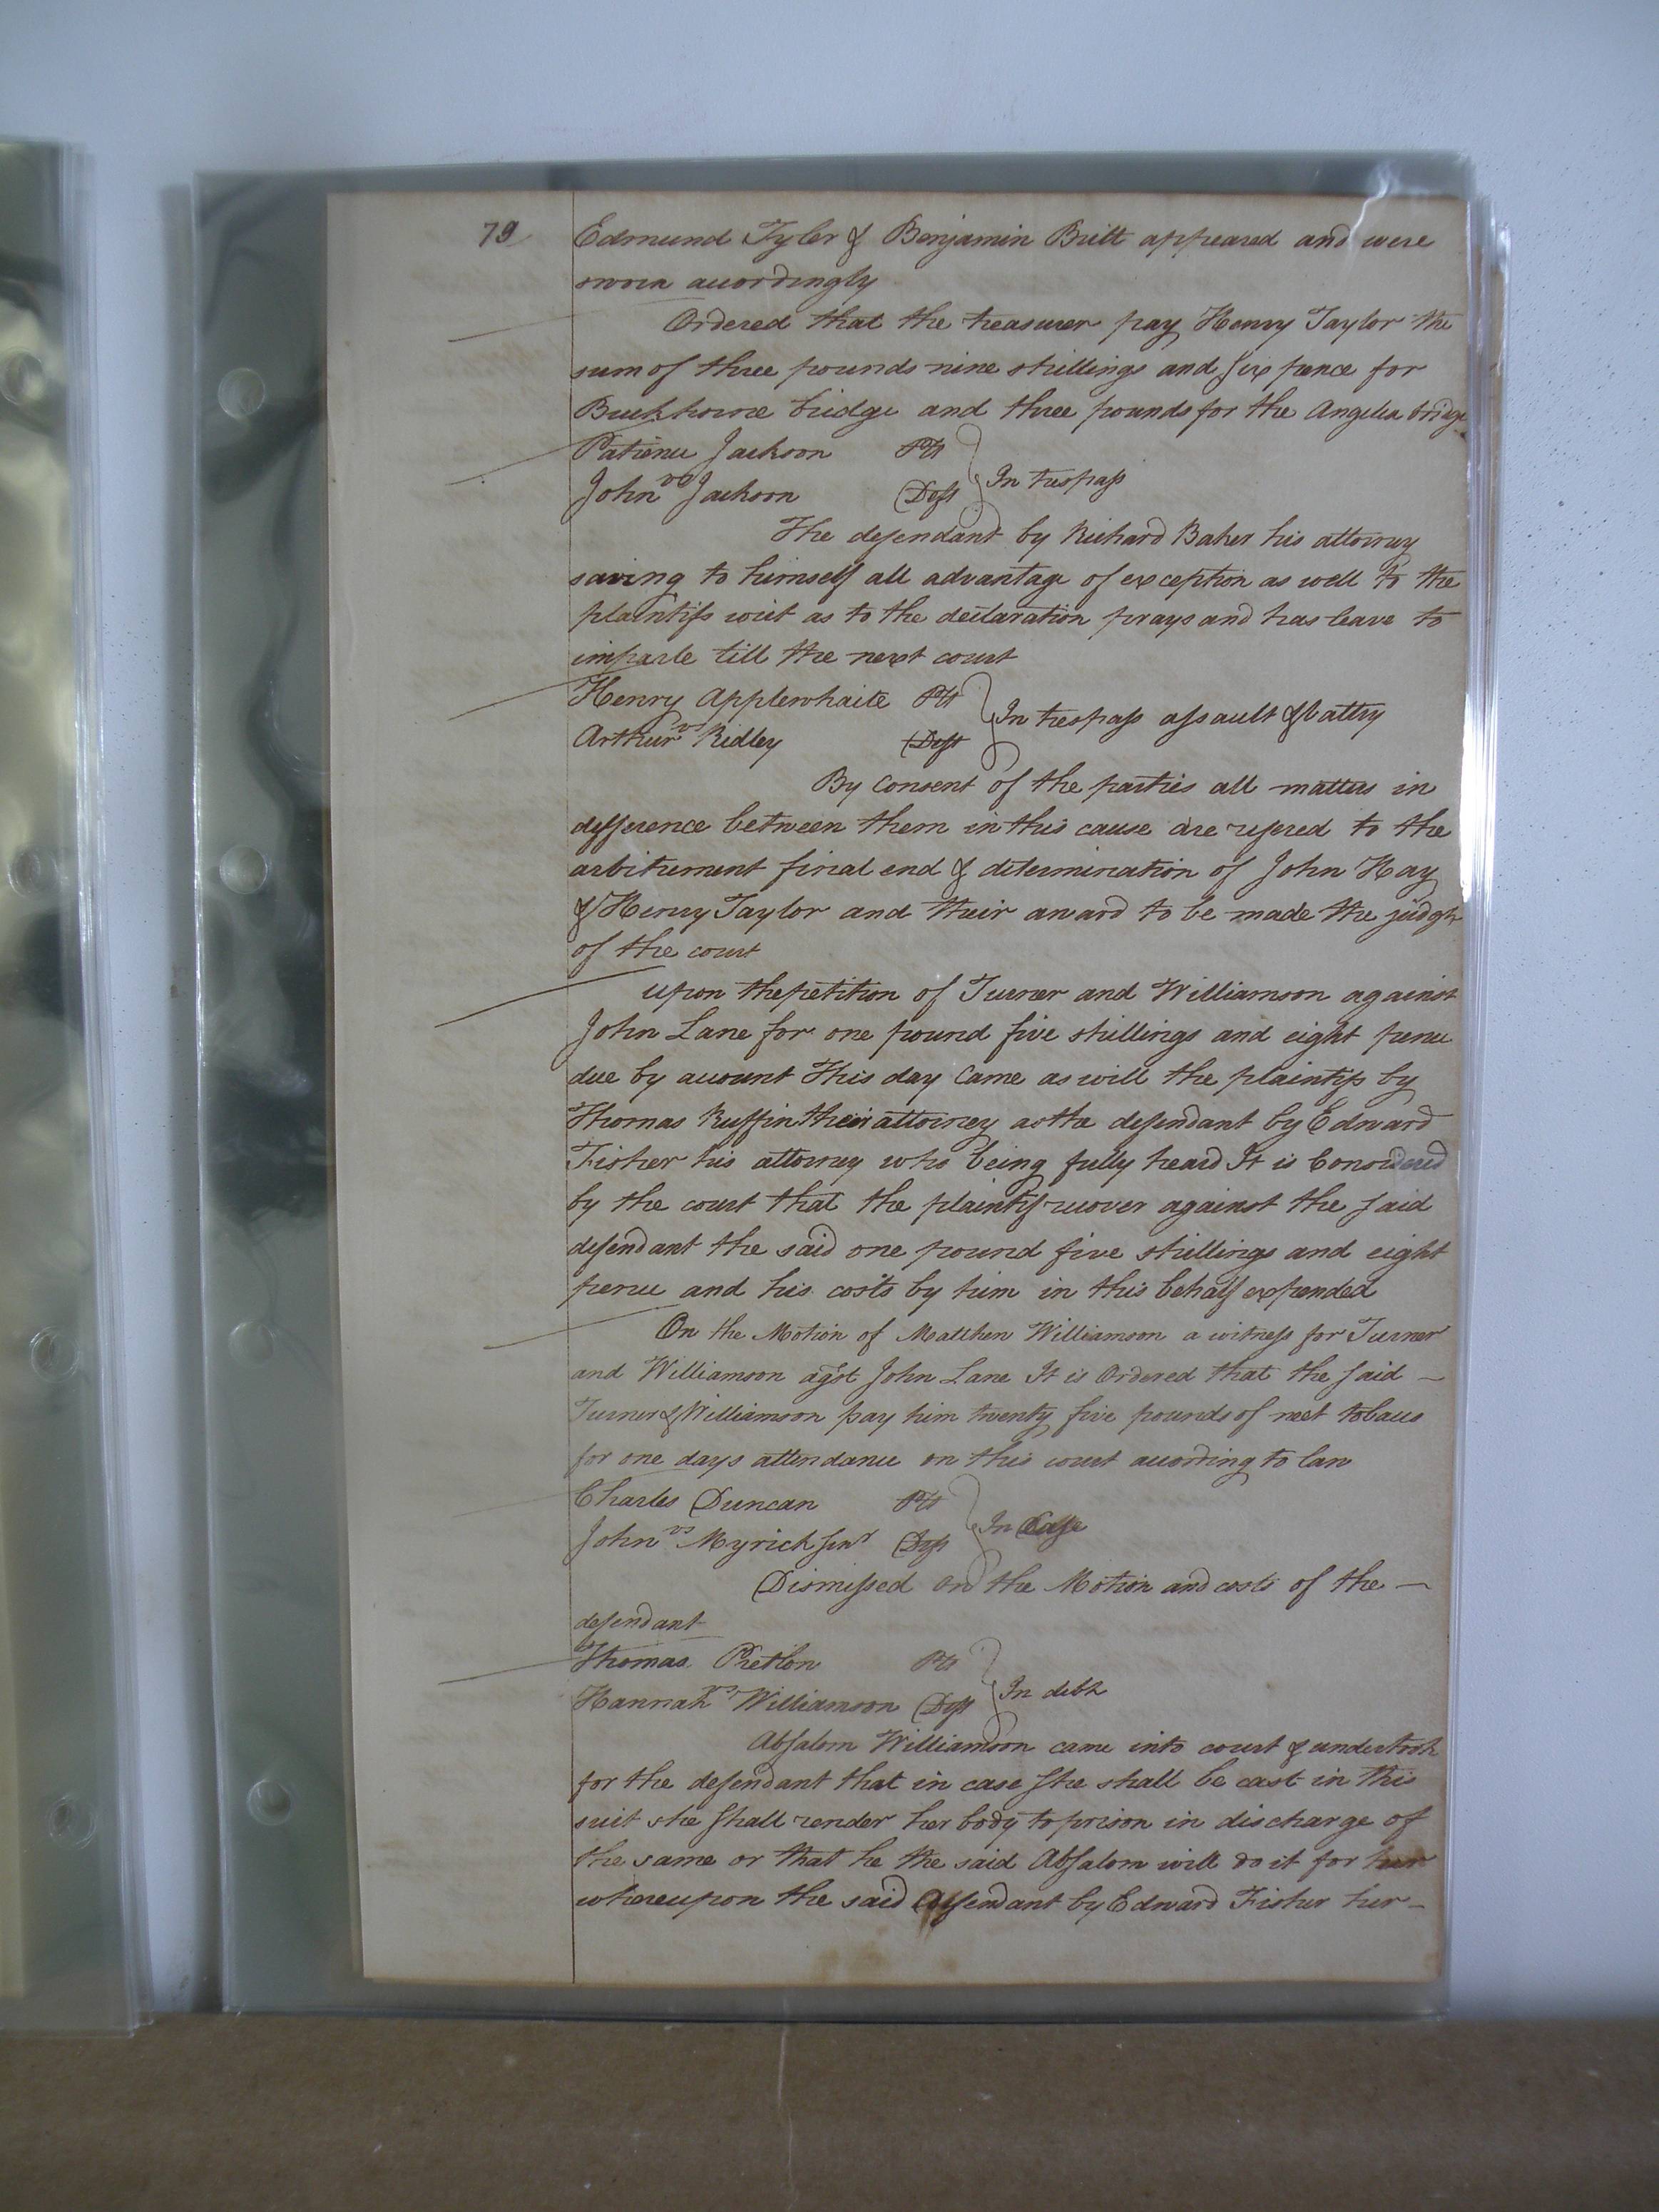 79
Edmund Tyler & Benjamin Britt appeared and were
sworn accordingly
Ordered that the treasurer pay Henry Taylor the
sum of three pounds nine shillings and six pence for
Buckhorne bridge and three pounds for the Angelica bridge
Patience Jackson Plt
vs
John Jackson Deft } In trespass
The defendant by Richard Baker his attorney
saving to himself all advantage of exception as well to the
plaintifs writ as to the declaration prays and has leave to
imparle till the next court
Henry Applewhaite Plt
vs
Arthur Ridley Deft } In trespass assault & battry
By Consent of the parties all matters in
difference between them in this cause are refered to the
arbitrement final end & determination of John Kay
& Henry Taylor and their award to be made the judgt
of the court
upon the petition of Turner and Williamson against
John Lane for one pound five shillings and eight pence
due by account This day Came as well the plaintifs by
Thomas Ruffin their attorney as the defendant by Edward
Fisher his attorney who being fully heard It is Considered
by the court that the plaintif recover against the said
defendant the said one pound five shillings and eight
pence and his costs by him in this behalf expended
On the Motion of Matthew Williamson a witness for Turner
and Williamson agst John Lane It is Ordered that the said
Turner & Williamson pay him twenty five pounds of neet tobacco
for one days attendance on this court according to law
Charles Duncan Plt
vs
John Myrick senr Deft } In Case
Dismissed on the Motion and costs of the
defendant
Thomas Pretlow Plt
vs
Hannah Williamson Deft } In debt
Absalom Williamson came into court & undertook
for the defendant that in case she shall be cast in this
suit she shall render her body to prison in discharge of
the same or that he the said Absalom will do it for her
whereupon the said defendant by Edward Fisher her